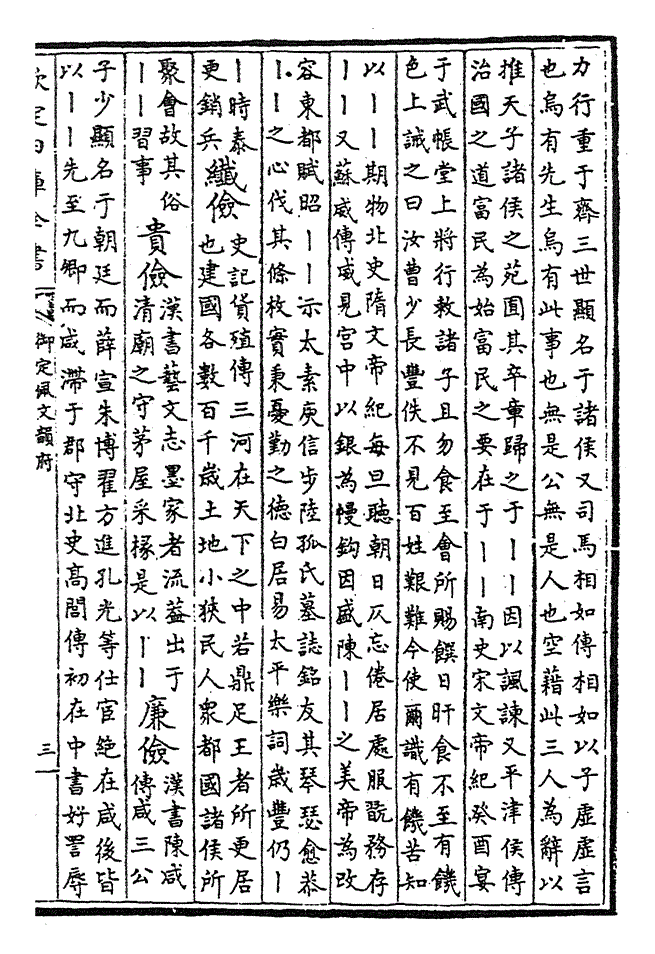 力行重于齊三世顯名于諸侯又司馬相如傳相如以子虛虛言
也烏有先生烏有此事也無是公無是人也空藉此三人為辭以
推天子諸侯之苑囿其卒章歸之于丨丨因以諷諫又平津侯傳
治國之道富民為始富民之要在于丨丨南史宋文帝紀癸酉宴
于武帳堂上將行敕諸子且勿食至會所賜饌日旰食不至有饑
色上誡之曰汝曹少長豐佚不見百姓艱難今使爾識有饑苦知
以丨丨期物北史隋文帝紀每旦聽朝日仄忘倦居處服翫務存
丨丨又蘇威傳威見宮中以銀為幔鈎因盛陳丨丨之美帝為改
容東都賦昭丨丨示太素庾信步陸孤氏墓誌銘友其琴瑟愈恭
丨丨之心伐其條枚實秉憂勤之德白居易太平樂詞歲豐仍丨
丨時泰
更銷兵
纖儉
史記貨殖傳三河在天下之中若鼎足王者所更居
也建國各數百千歲土地小狹民人衆都國諸侯所
聚會故其俗
丨丨習事
貴儉
漢書藝文志墨家者流葢出于
清廟之守茅屋采椽是以丨丨
廉儉
漢書陳咸
傳咸三公
子少顯名于朝廷而薛宣朱博翟方進孔光等仕宦絶在咸後皆
以丨丨先至九卿而咸滯于郡守北史高閭傳初在中書好詈辱
欽定四庫全書
御定佩文韻府
三